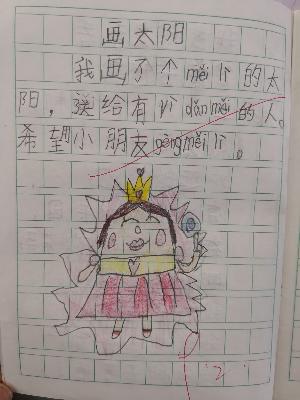 画太阳
我画了个měi lì的太
阳，送给有 měi的人。
希望小朋友gèng měi lì。
2